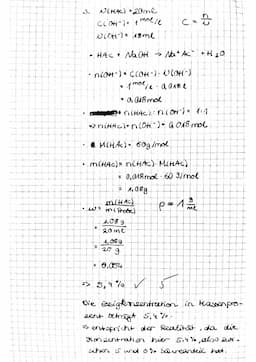 2. V(HAc) = 20ml
c(OH⁻) = 1 mol/l c = n/V
V(OH⁻) = 18ml
• HAc + NaOH → Na⁺Ac⁻ + H₂O
• n(OH⁻) = c(OH⁻) · V(OH⁻)
= 1 mol/l · 0,018 l
= 0,018mol
• n(HAc) : n(OH⁻) = 1:1
⇒ n(HAc) = n(OH⁻) = 0,018mol
• M(HAc) = 60g/mol
• m(HAc) = n(HAc) · M(HAc)
= 0,018mol · 60 g/mol
= 1,08g
• ω = m(HAc) / m(Probe) ρ = 1 g/ml
= 1,08g / 20ml
= 1,08g / 20 g
= 0,054
⇒ 5,4% ✓ 5
Die Essigkonzentration in Massenpro-
zent beträgt 5,4%.
⇒ entspricht der Realität, da die
Konzentration hier 5,4%, also zwi-
schen 5 und % Säureanteil hat.